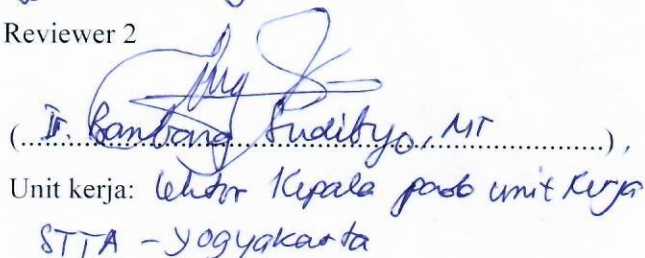 Reviewer 2
(Ir. Bambang Sudibyo, MT)
Unit kerja: Lektor Kepala pada unit Kerja
STTA - Yogyakarta